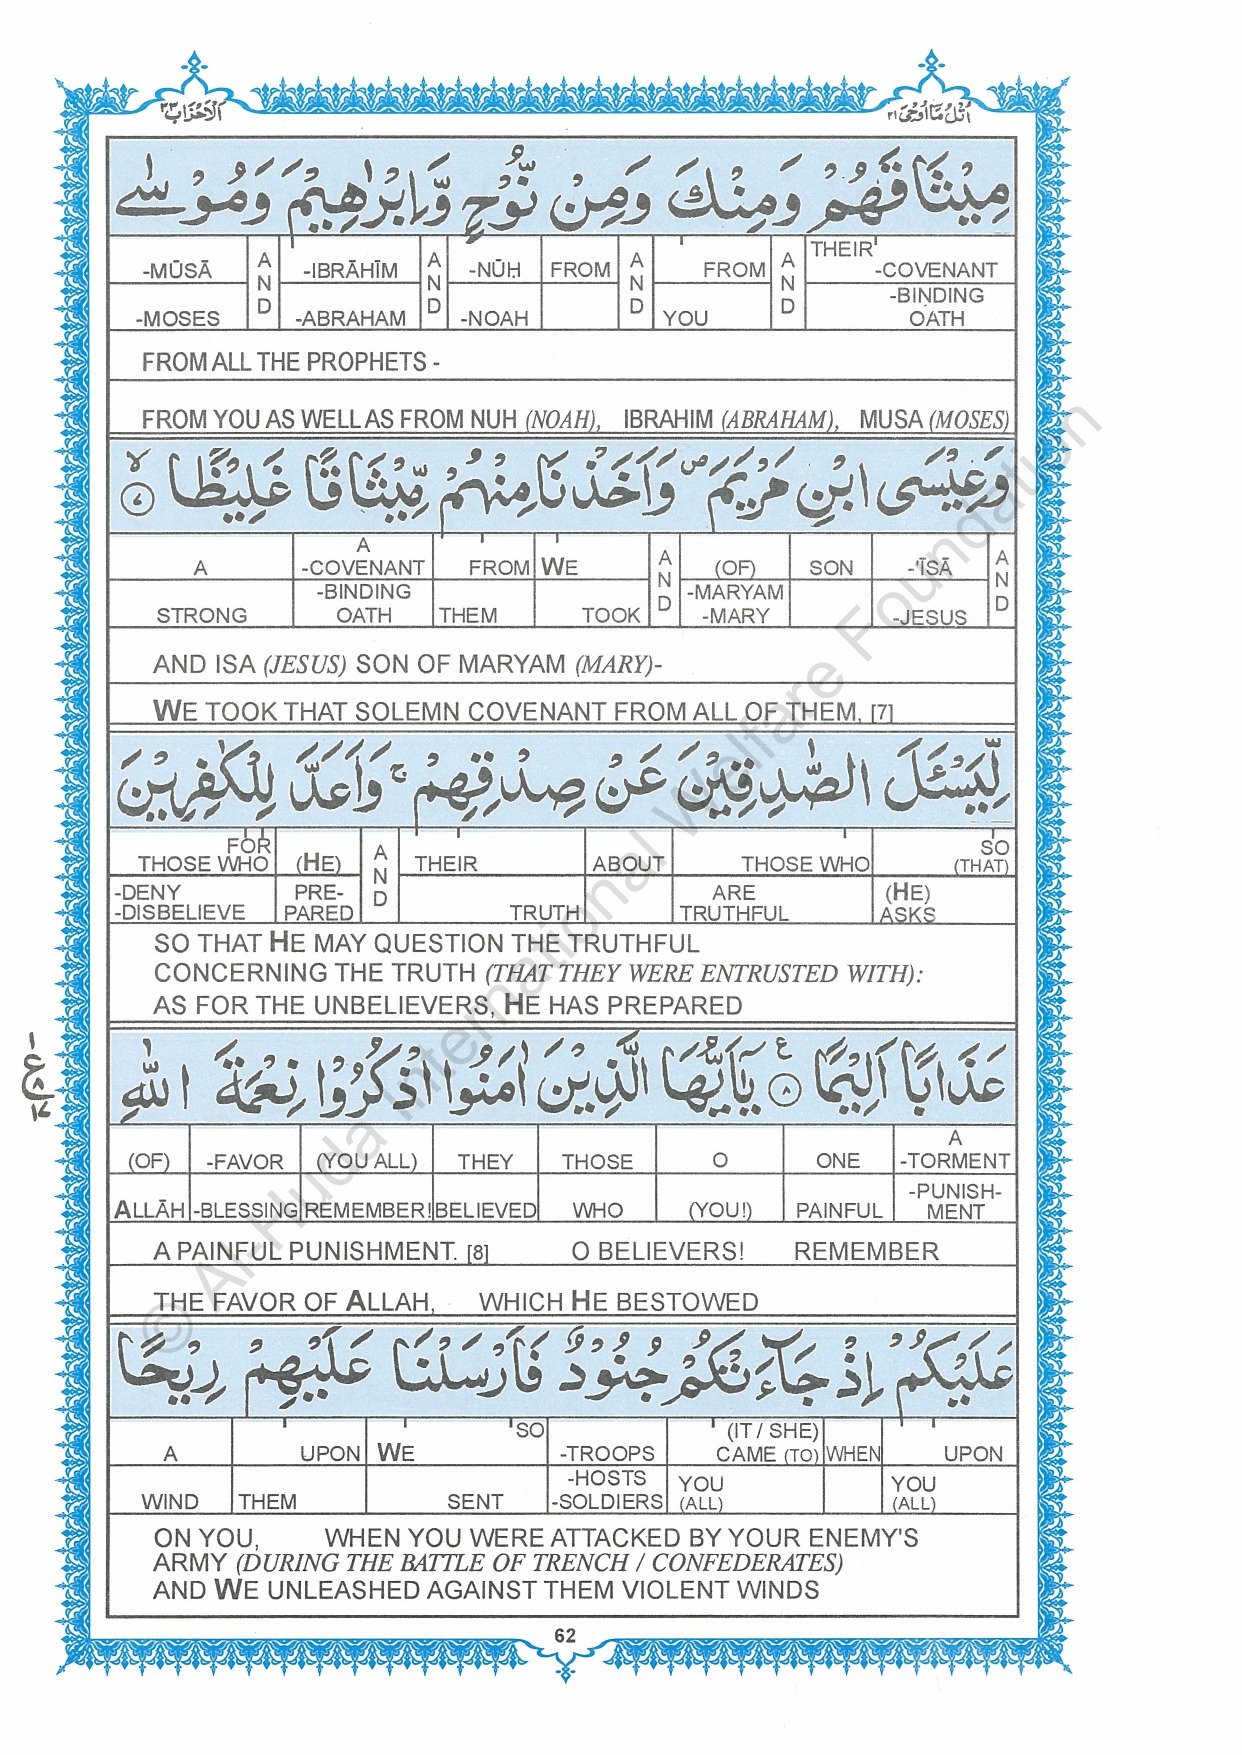 الاحزاب ٣٣
اتل ما اوحی ٢١
مِيْثَاقَهُمْ وَمِنْكَ وَمِنْ نُّوْحٍ وَّاِبْرٰهِيْمَ وَمُوْسٰى
-MŪSĀ AND -IBRĀHĪM AND -NŪH FROM AND FROM AND THEIR -COVENANT
-MOSES -ABRAHAM -NOAH YOU -BINDING OATH
FROM ALL THE PROPHETS -
FROM YOU AS WELL AS FROM NUH (NOAH), IBRAHIM (ABRAHAM), MUSA (MOSES)
وَعِيْسَى ابْنِ مَرْيَمَ ۖ وَاَخَذْنَا مِنْهُمْ مِّيْثَاقًا غَلِيْظًا ۙ ٧
A A -COVENANT FROM WE AND (OF) SON -'ĪSĀ AND
STRONG -BINDING OATH THEM TOOK -MARYAM -MARY -JESUS
AND ISA (JESUS) SON OF MARYAM (MARY)-
WE TOOK THAT SOLEMN COVENANT FROM ALL OF THEM, [7]
لِّيَسْـَٔلَ الصّٰدِقِيْنَ عَنْ صِدْقِهِمْ ۚ وَاَعَدَّ لِلْكٰفِرِيْنَ
FOR THOSE WHO (HE) AND THEIR ABOUT THOSE WHO SO (THAT)
-DENY -DISBELIEVE PRE-PARED TRUTH ARE TRUTHFUL (HE) ASKS
SO THAT HE MAY QUESTION THE TRUTHFUL
CONCERNING THE TRUTH (THAT THEY WERE ENTRUSTED WITH):
AS FOR THE UNBELIEVERS, HE HAS PREPARED
عَذَابًا اَلِيْمًا ٨ ع يٰٓاَيُّهَا الَّذِيْنَ اٰمَنُوا اذْكُرُوْا نِعْمَةَ اللّٰهِ
(OF) -FAVOR (YOU ALL) THEY THOSE O ONE A -TORMENT
ALLĀH -BLESSING REMEMBER! BELIEVED WHO (YOU!) PAINFUL -PUNISH-MENT
A PAINFUL PUNISHMENT. [8] O BELIEVERS! REMEMBER
THE FAVOR OF ALLAH, WHICH HE BESTOWED
عَلَيْكُمْ اِذْ جَآءَتْكُمْ جُنُوْدٌ فَاَرْسَلْنَا عَلَيْهِمْ رِيْحًا
A UPON WE SO -TROOPS (IT / SHE) CAME (TO) WHEN UPON
WIND THEM SENT -HOSTS -SOLDIERS YOU (ALL) YOU (ALL)
ON YOU, WHEN YOU WERE ATTACKED BY YOUR ENEMY'S
ARMY (DURING THE BATTLE OF TRENCH / CONFEDERATES)
AND WE UNLEASHED AGAINST THEM VIOLENT WINDS
62
© Al-Huda International Welfare Foundation